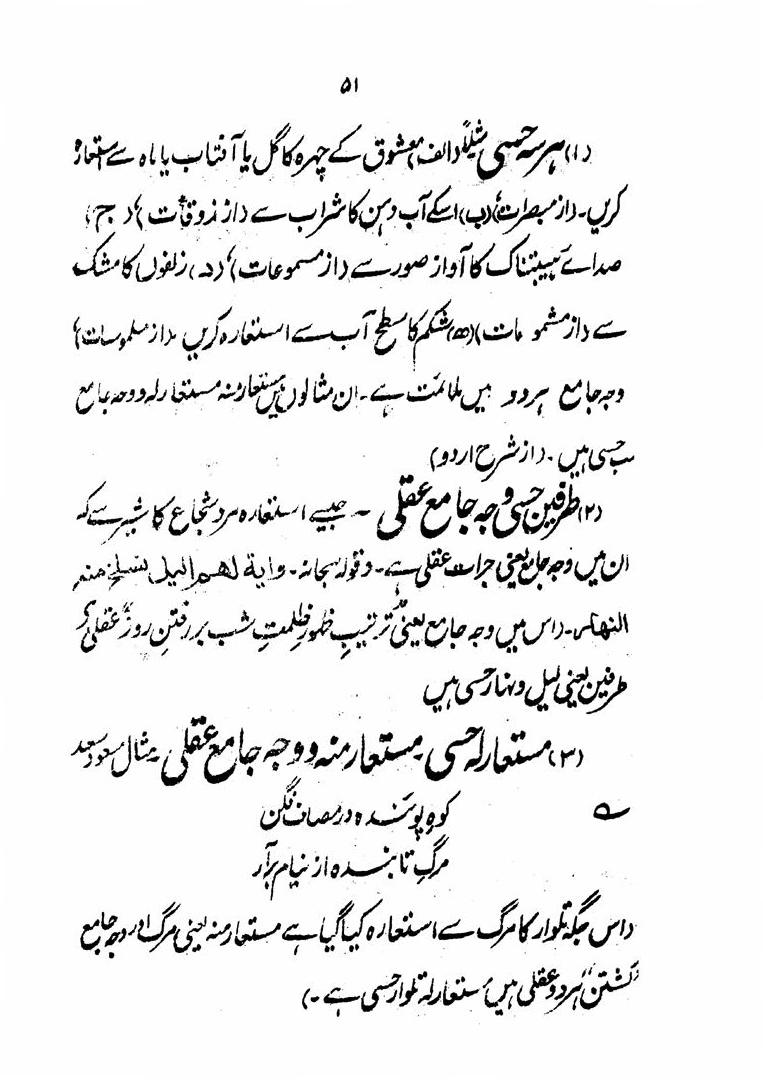 ۵۱
(۱) ہر سہ حسی مثلاً (الف) معشوق کے چہرہ کا گل یا آفتاب یا ماہ سے استعارہ
کریں۔ (از مبصرات) (ب) اسکے آب دہن کا شراب سے (از ذوقات) (ج)
صدائے ہیبتناک کا آواز صور سے (از مسموعات) (د) زلفوں کا مشک
سے (از مشمومات) (ھ) شکم کا سطح آب سے استعارہ کریں (از ملموسات)
وجہ جامع ہر دو میں ملائمت ہے۔ ان مثالوں میں مستعار منہ مستعار لہ و وجہ جامع
سب حسی ہیں۔ (از شرح اردو)
(۲) طرفین حسی وجہ جامع عقلی ۔ جیسے استعارہ مرد شجاع کا شیر سے کہ
ان میں وجہ جامع یعنی جرات عقلی ہے۔ وقولہ سبحانہ۔ وایة لھم الیل نسلخ منہ
النھار۔ (اس میں وجہ جامع یعنی ترتیبِ ظہورِ ظلمتِ شب بر رفتنِ روز عقلی ہے
طرفین یعنی لیل و نہار حسی ہیں
(۳) مستعار لہ حسی۔ مستعار منہ و وجہ جامع عقلی مثال مسعود سعد
کوہِ پوشندہ در مصاف فگن
مرگِ تابندہ از نیام برآر
(اس جگہ تلوار کا مرگ سے استعارہ کیا گیا ہے مستعار منہ یعنی مرگ اور وجہ جامع
"کشتن" ہر دو عقلی ہیں مستعار لہ تلوار حسی ہے ۔)